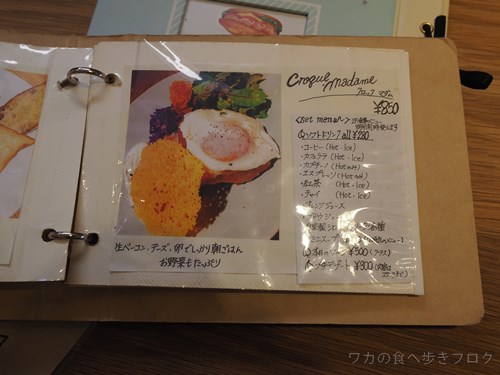 Croque madame
クロック マダム
¥850
<Set menu>
ソフトドリンク all ¥280
・コーヒー (Hot・Ice)
・カフェラテ (Hot・Ice)
・カプチーノ (Hot のみ)
・エスプレッソ (Hot のみ)
・紅茶 (Hot・Ice)
・チャイ (Hot・Ice)
ジュース
¥500 (グラス)
プチデザート ¥300
生ベーコン、チーズ、卵でしっかり朝ごはん
お野菜もたっぷり
ワカの食べ歩きブログ